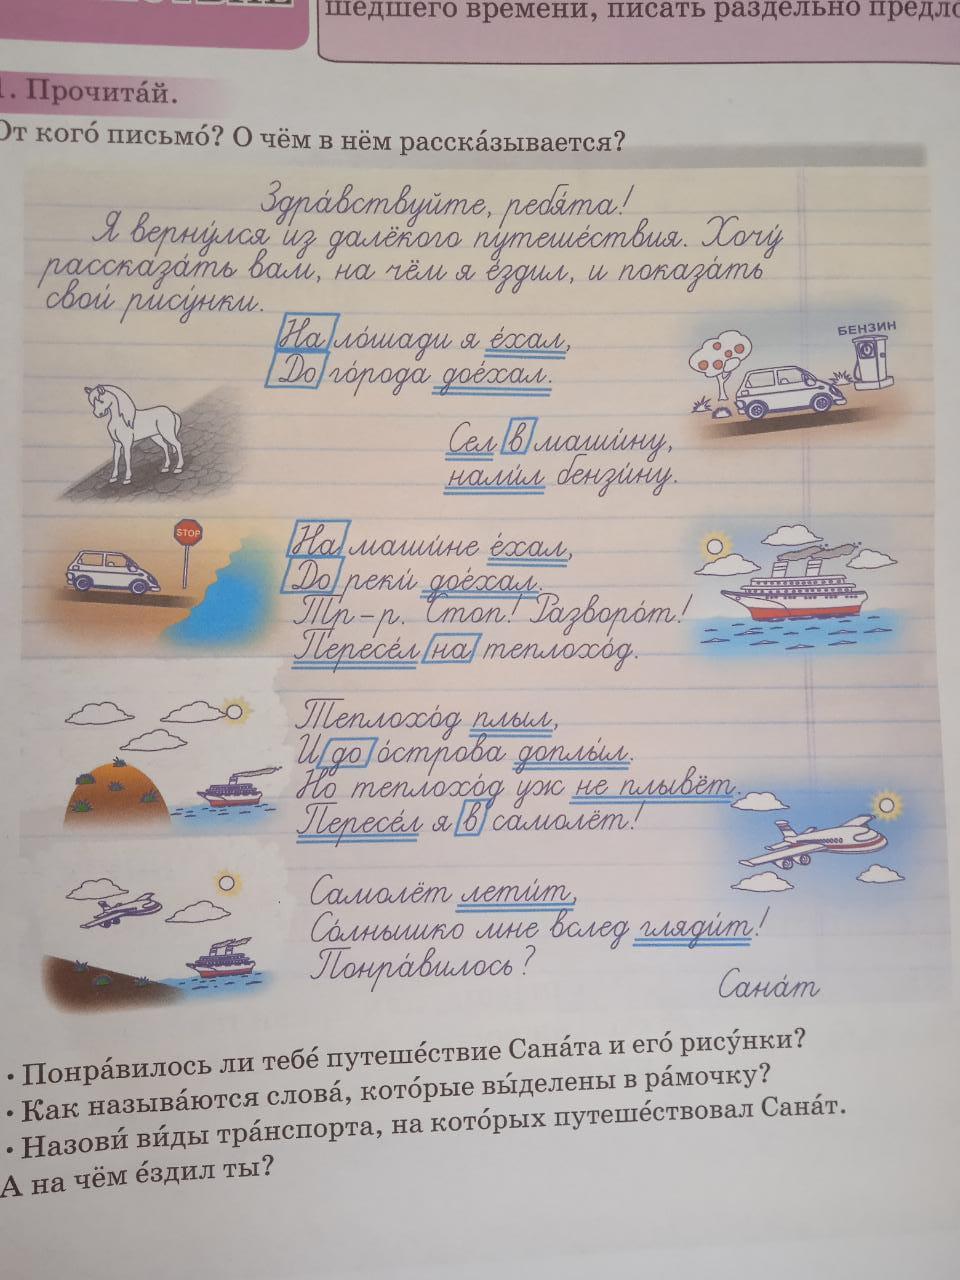 шедшего времени, писать раздельно
1. Прочита́й.
От кого́ письмо́? О чём в нём расска́зывается?
Здра́вствуйте, ребя́та!
Я верну́лся из далёкого путеше́ствия. Хочу́
рассказа́ть вам, на чём я е́здил, и показа́ть
свои́ рису́нки.
На ло́шади я е́хал,
До го́рода дое́хал.
БЕНЗИН
Сел в маши́ну,
нали́л бензи́ну.
STOP
На маши́не е́хал,
До реки́ дое́хал.
Тр-р. Стоп! Разворо́т!
Пересе́л на теплохо́д.
Теплохо́д плыл,
И до о́строва доплы́л.
Но теплохо́д уж не плывёт.
Пересе́л я в самолёт!
Самолёт лети́т,
Со́лнышко мне вслед гляди́т!
Понра́вилось?
Сана́т
• Понра́вилось ли тебе́ путеше́ствие Сана́та и его́ рису́нки?
• Как называ́ются слова́, кото́рые вы́делены в ра́мочку?
• Назови́ ви́ды тра́нспорта, на кото́рых путеше́ствовал Сана́т.
А на чём е́здил ты?